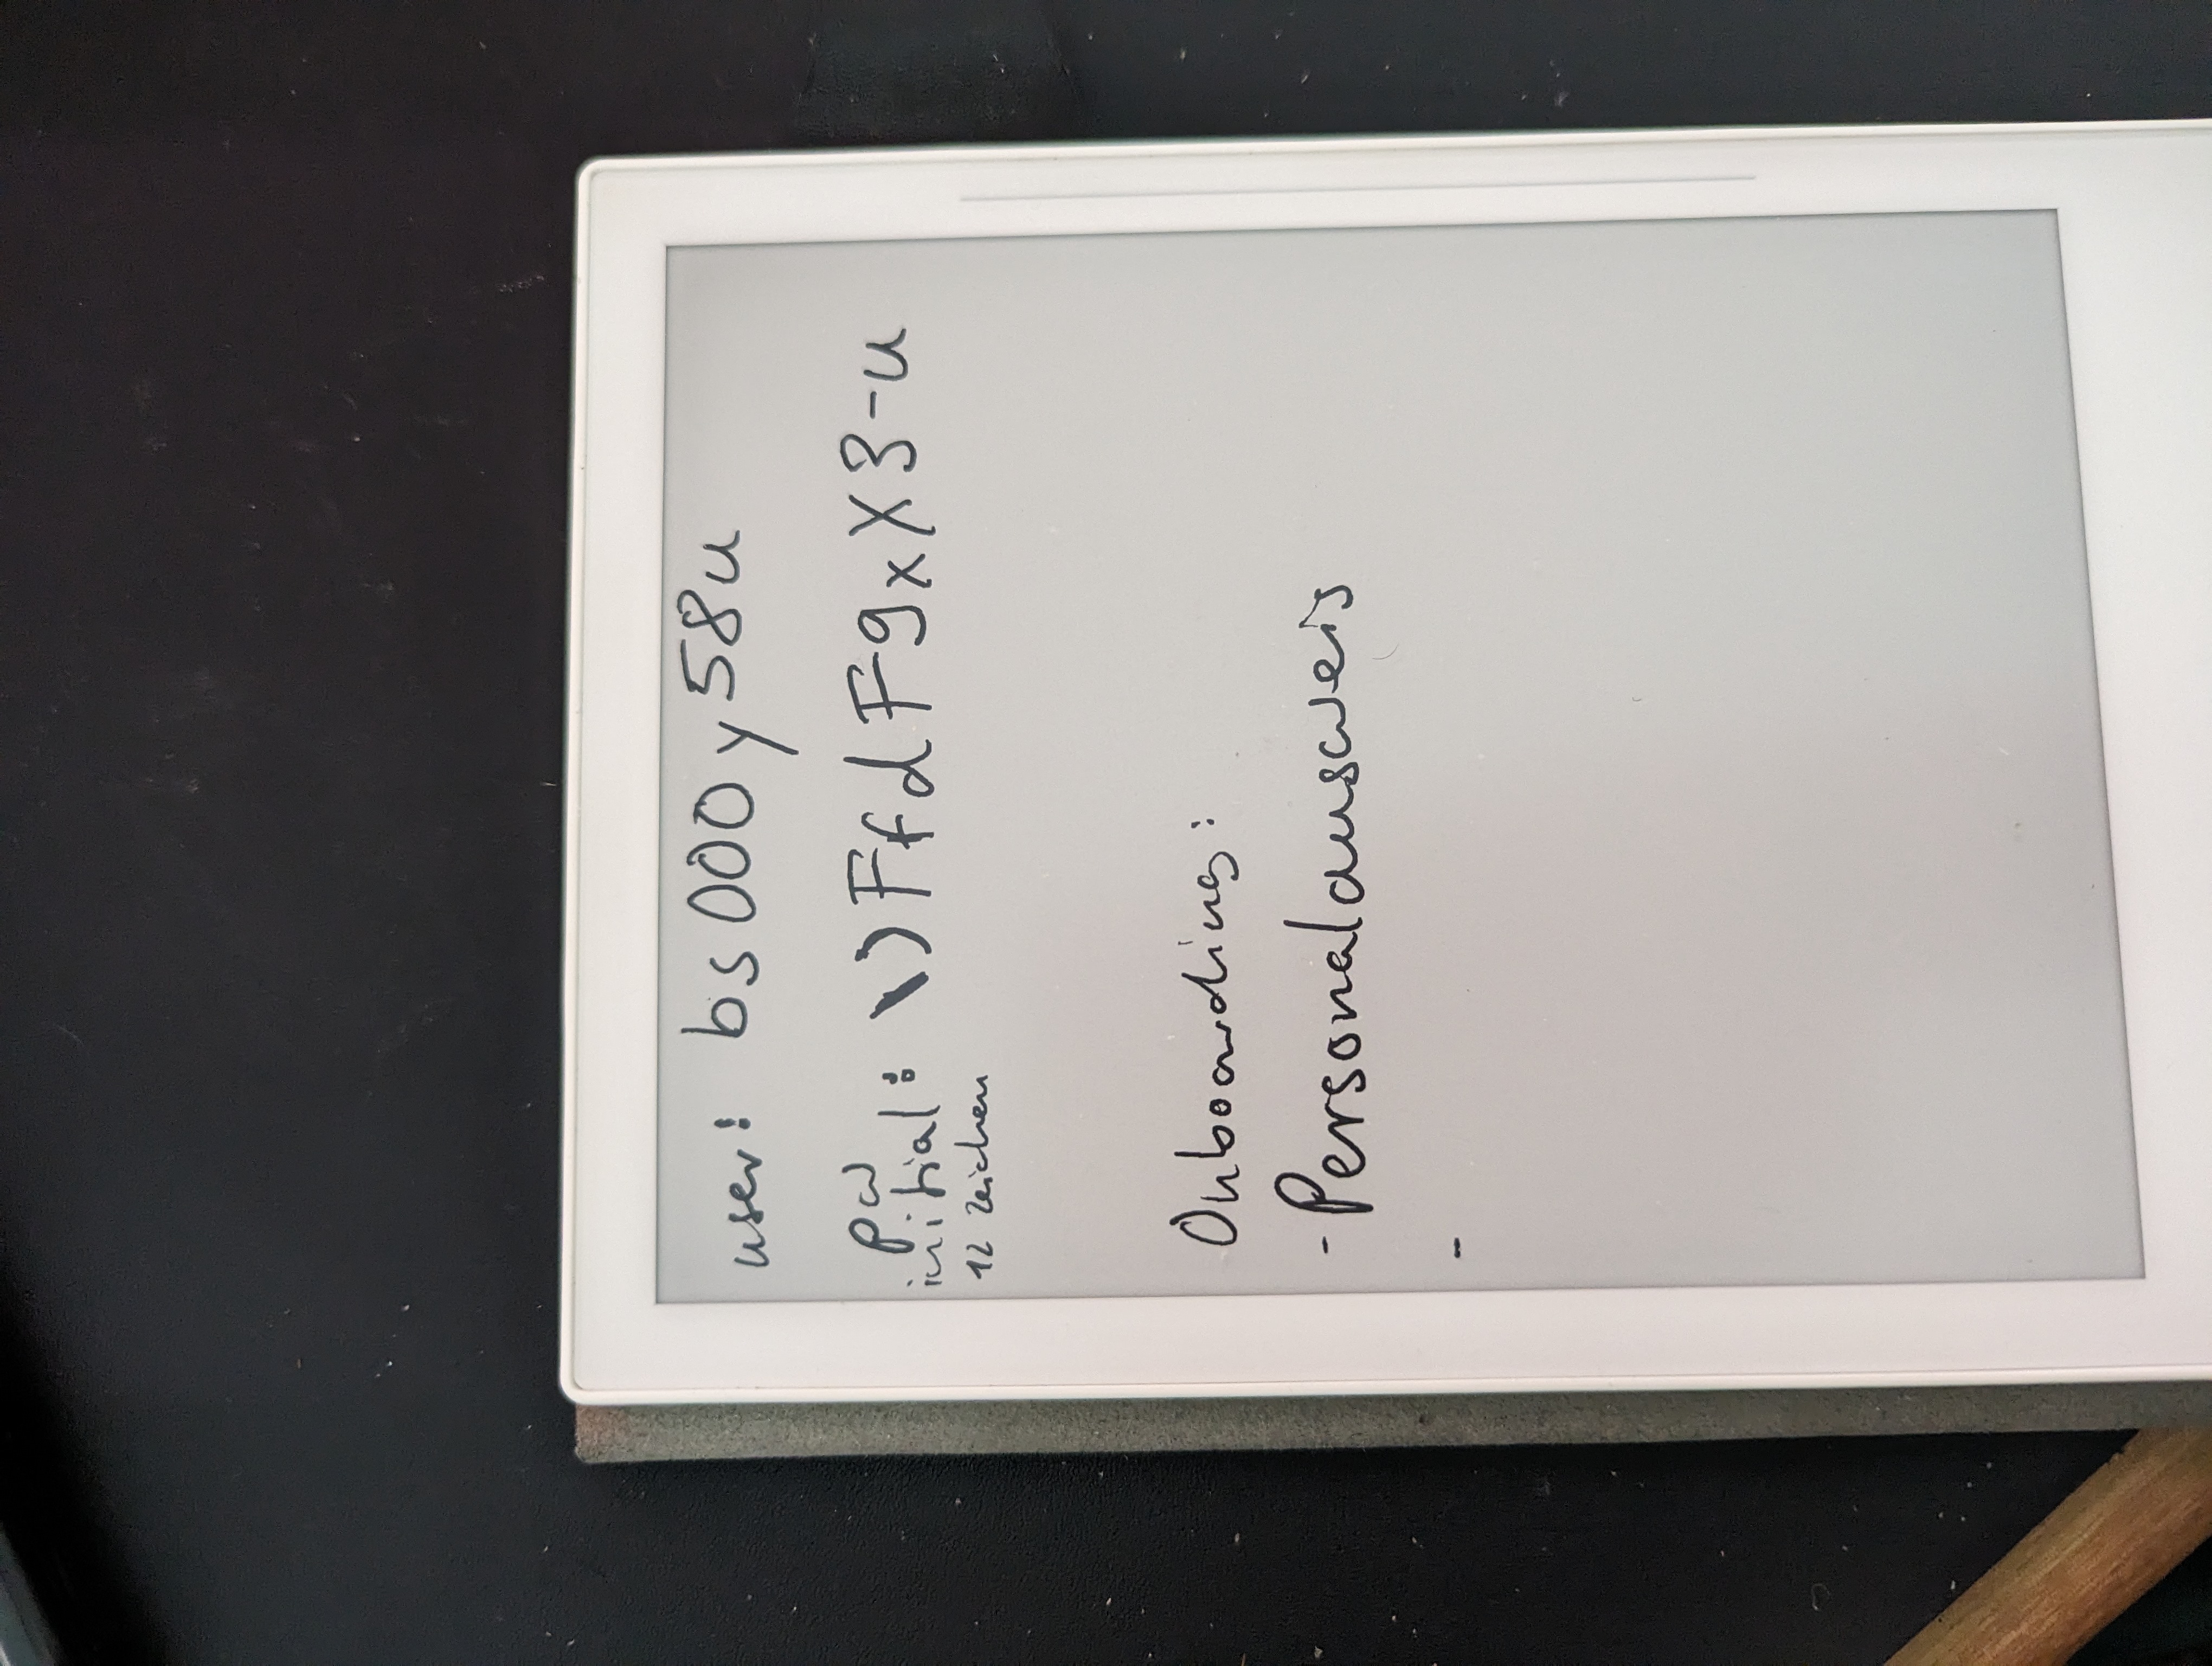 user: bs000y58u
PW
initial: \)FfdFgxX3-u
12 Zeichen
Onboarding:
- Personalausweis
-